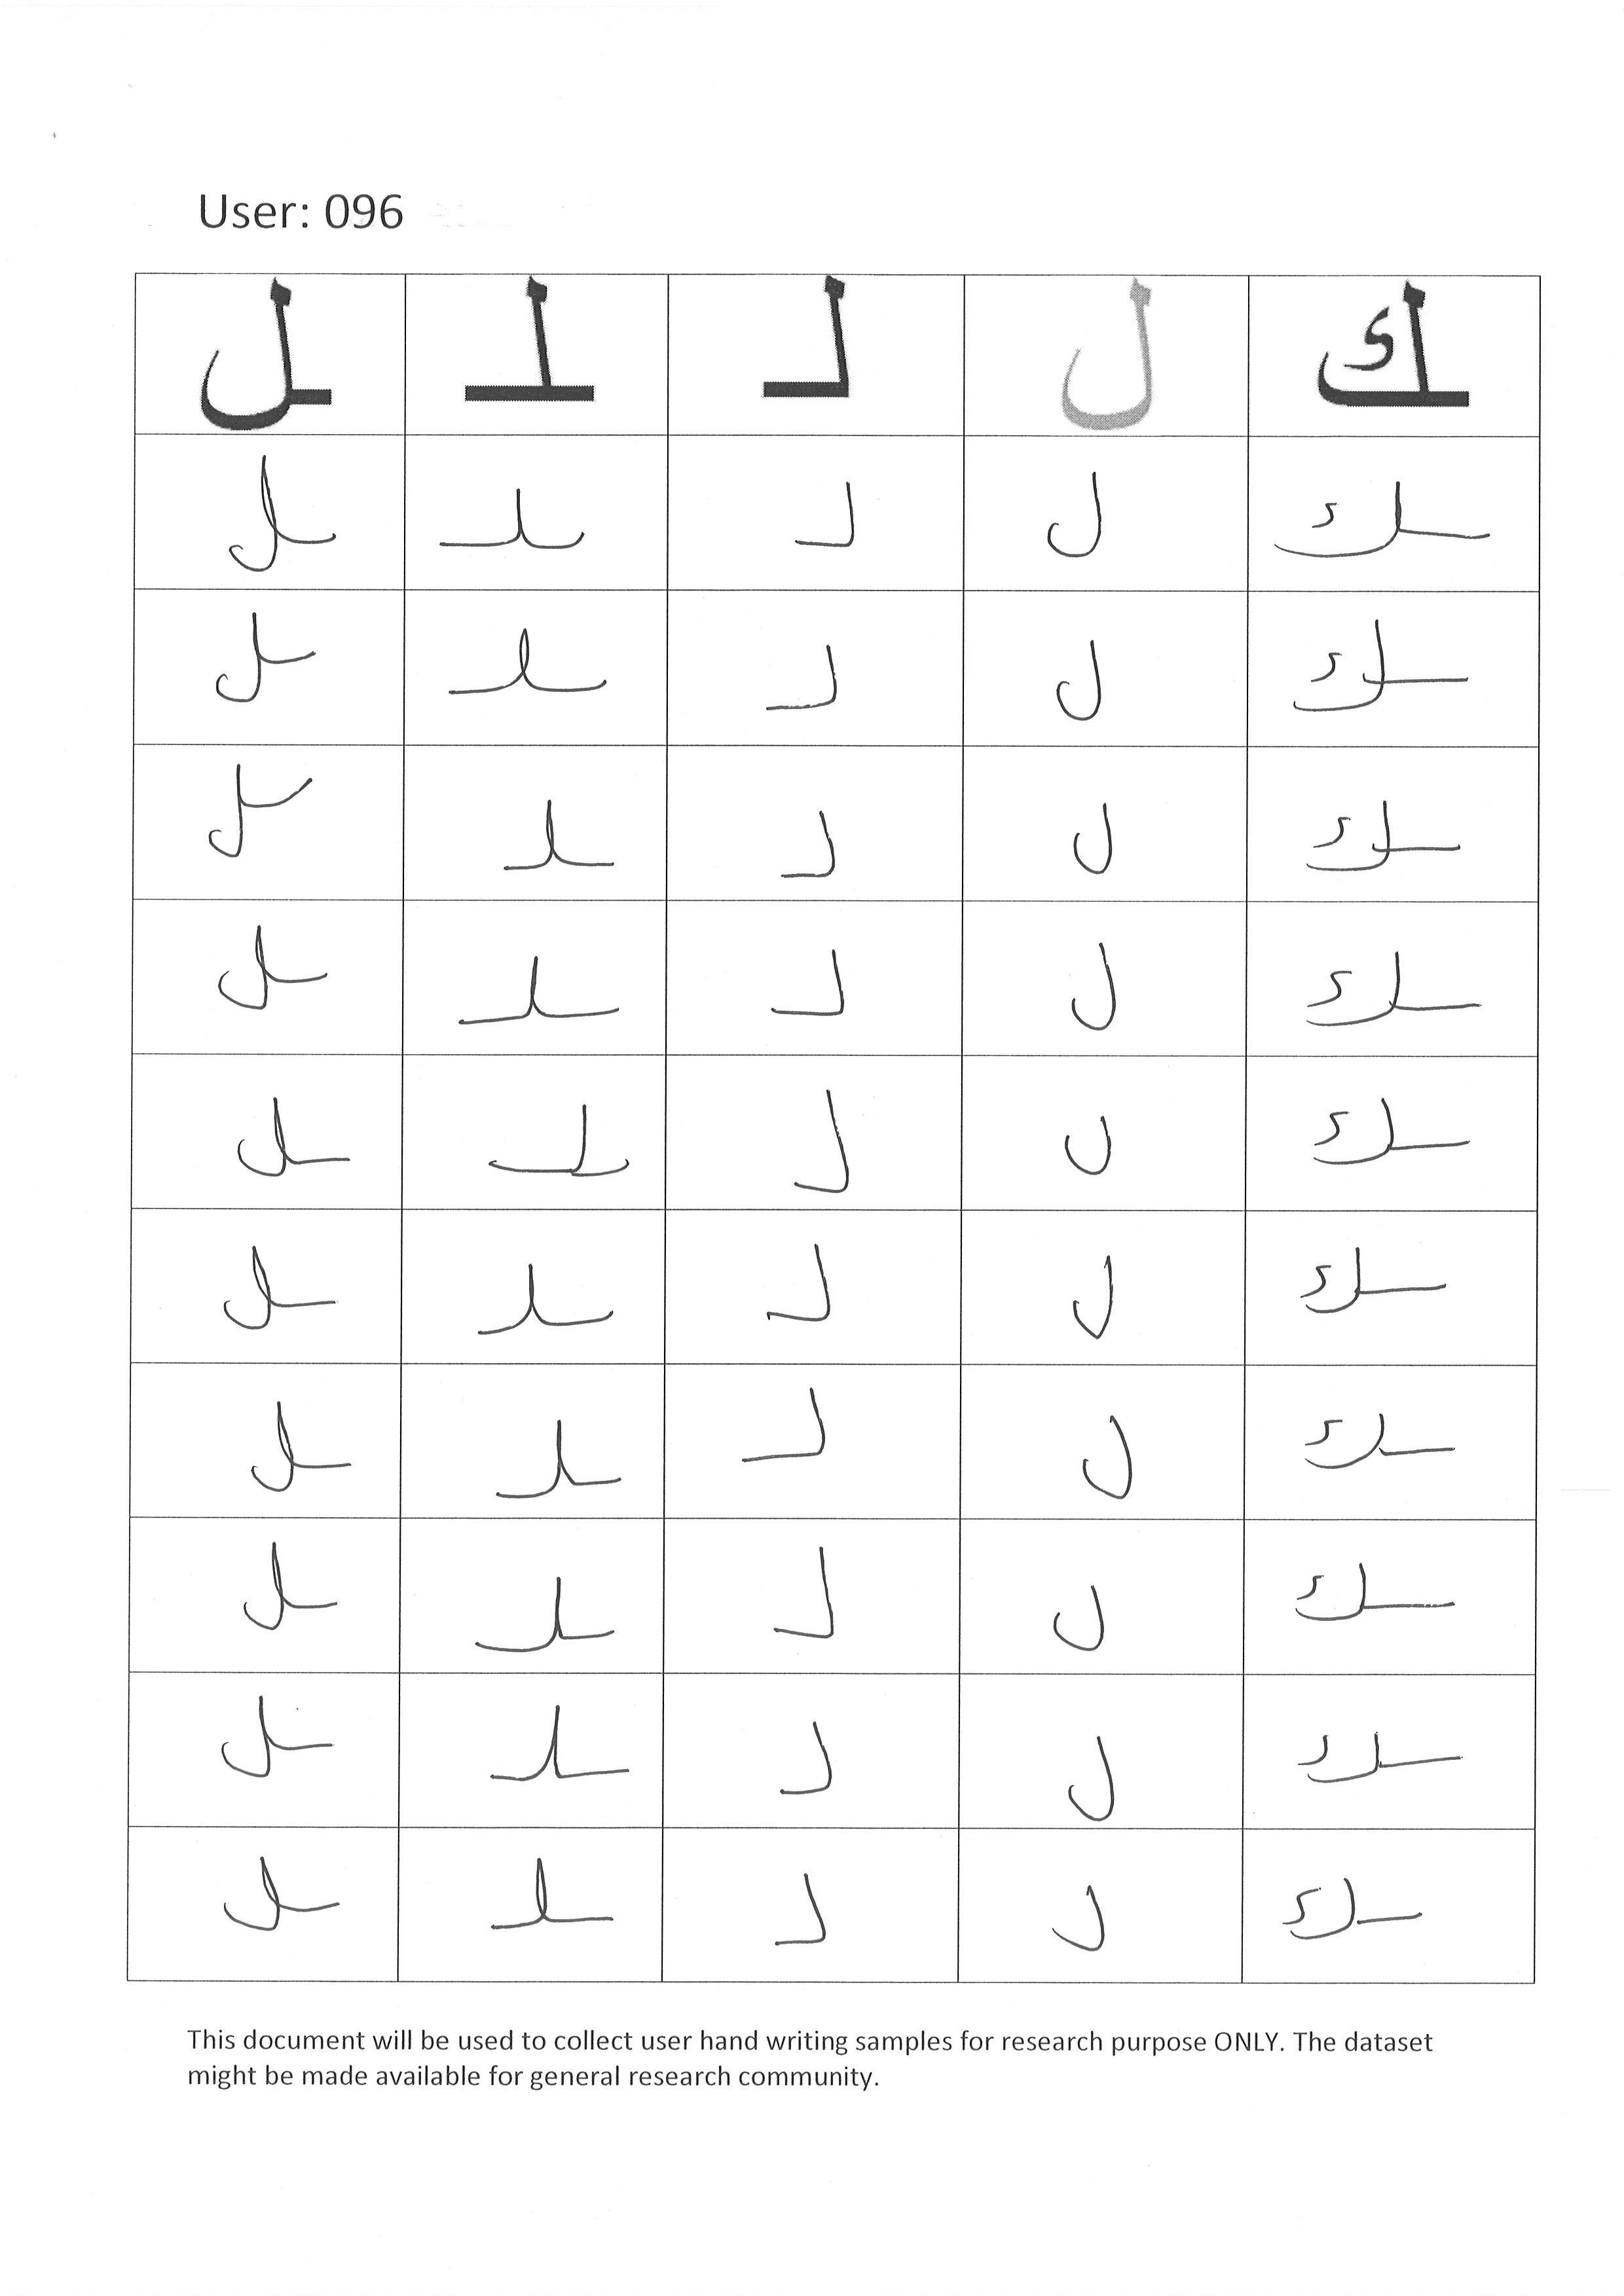 User: 096
ـل ـلـ لـ ل ـك
ـل ـلـ لـ ل ـك
ـل ـلـ لـ ل ـك
ـل ـلـ لـ ل ـك
ـل ـلـ لـ ل ـك
ـل ـلـ لـ ل ـك
ـل ـلـ لـ ل ـك
ـل ـلـ لـ ل ـك
ـل ـلـ لـ ل ـك
ـل ـلـ لـ ل ـك
ـل ـلـ لـ ل ـك
This document will be used to collect user hand writing samples for research purpose ONLY. The dataset
might be made available for general research community.